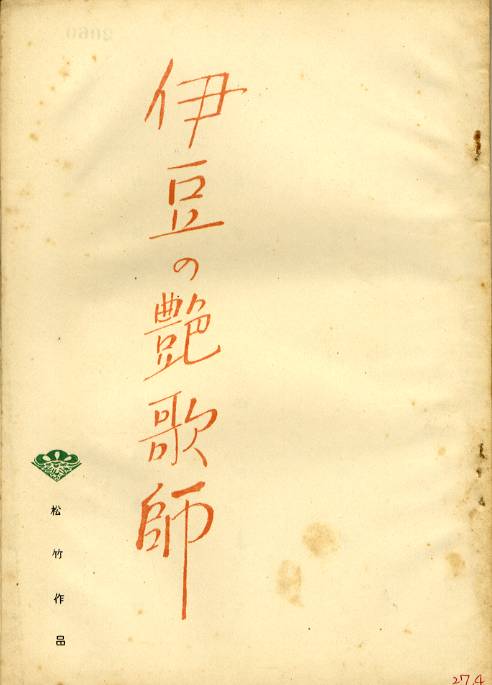 伊豆の艶歌師
松竹作品
27.4